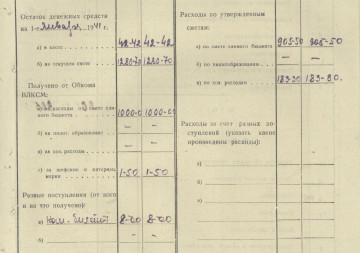 Остаток денежных средств
на 1-е января 1941 г.
а) в кассе 42-42 42-42
б) на текущем счете 1220-70 1220-70
Получено от Обкома
ВЛКСМ:
а) на расходы по смете единого бюджета 1000-0 1000-0
б) на полит. образование – –
в) на соц. расходы – –
г) за шефские и интернац. марки 1-50 1-50
Разные поступления (от кого
и на что получено):
а) Ком. билет 8-00 8-00
б) – –
Расходы по утвержденным
сметам:
а) по смете единого бюджета 905-50 905-50
б) по политобразованию – –
в) по соц. расходам 183-80 183-80.
Расходы за счет разных поступлений (указать какие
произведены расходы):
а)
б)
в)
г)